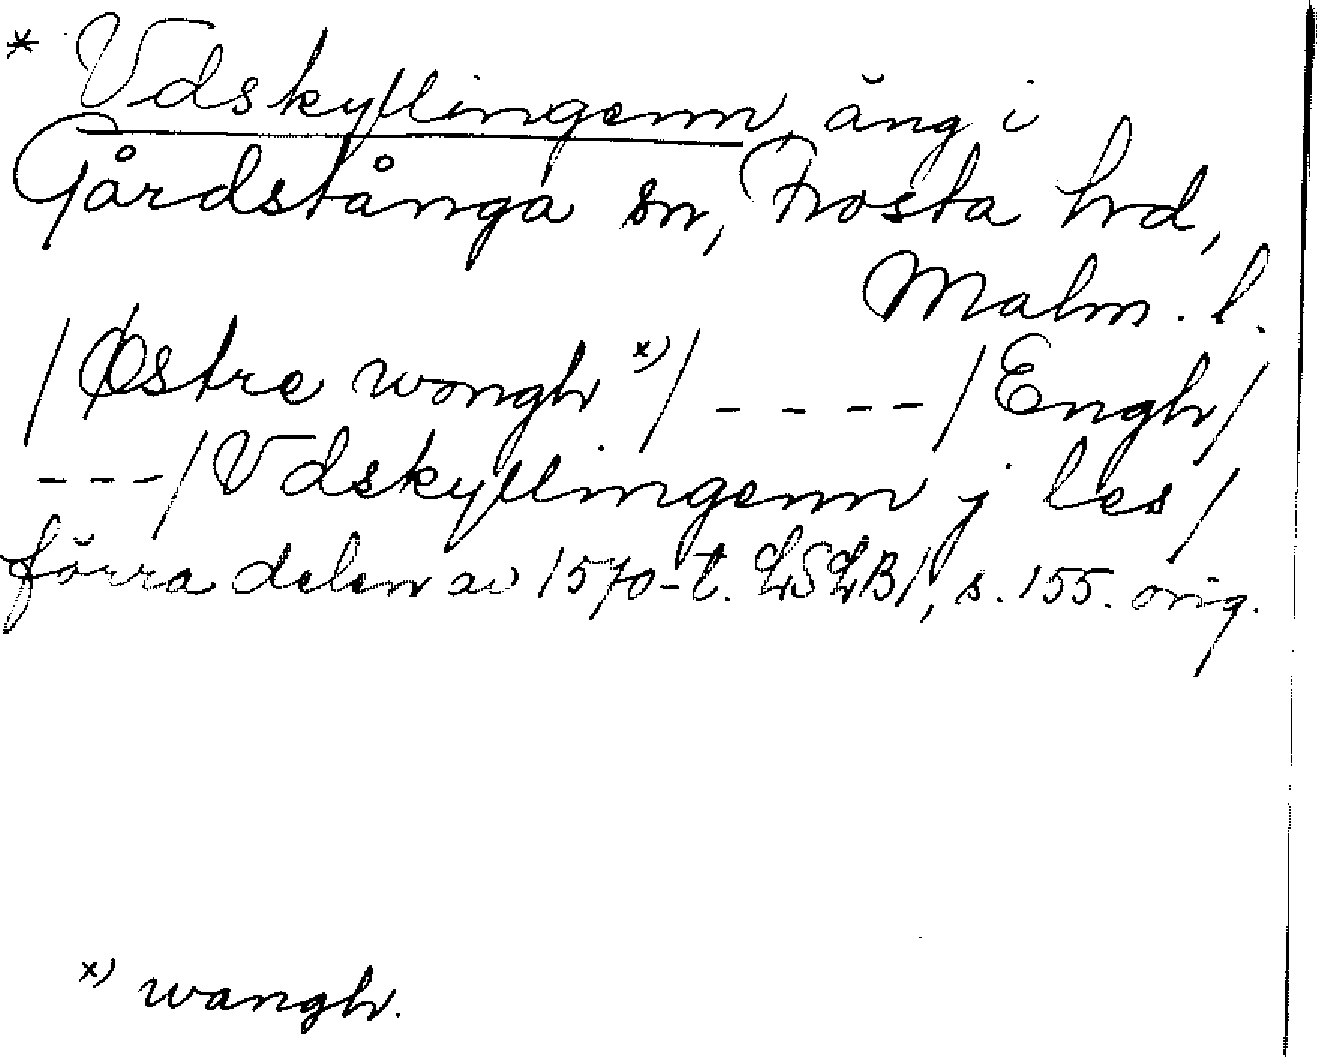 * Vdskyllingenn, äng i
Gårdstånga sn, Frosta hrd,
Malm. l.
/Østre wongh x)/ - - - - /Engh/
- - - /Vdskyllingenn j les/
förra delen av 1570-t. LSLB1, s. 155. orig.
x) wangh.